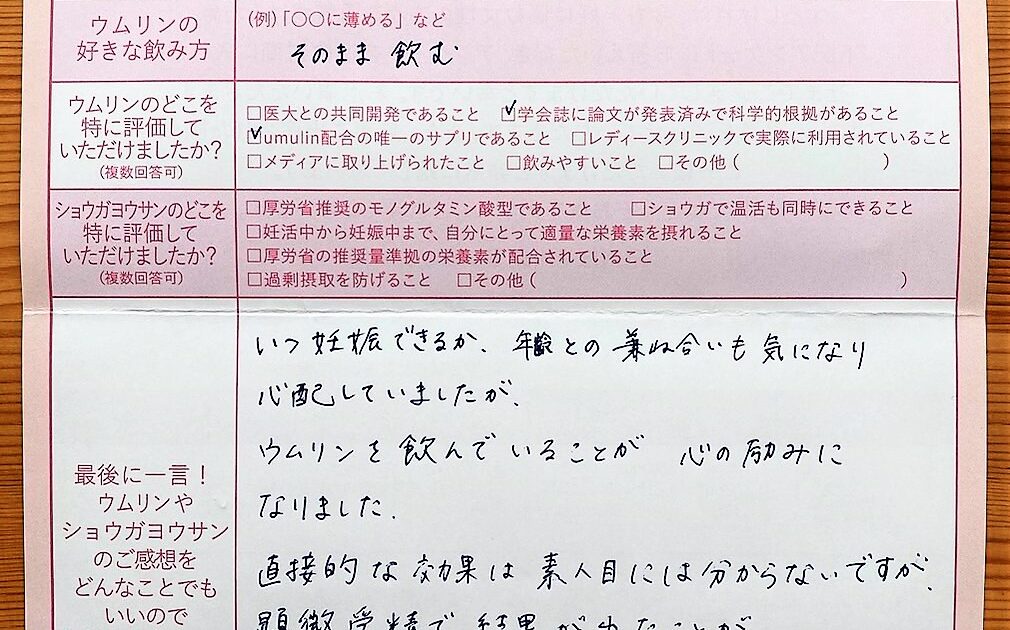 ウムリンの
好きな飲み方
(例)「〇〇に薄める」など
そのまま 飲む
ウムリンのどこを
特に評価して
いただけましたか?
(複数回答可)
□医大との共同開発であること ☑学会誌に論文が発表済みで科学的根拠があること
☑umulin配合の唯一のサプリであること □レディースクリニックで実際に利用されていること
□メディアに取り上げられたこと □飲みやすいこと □その他( )
ショウガヨウサンのどこを
特に評価して
いただけましたか?
(複数回答可)
□厚労省推奨のモノグルタミン酸型であること □ショウガで温活も同時にできること
□妊活中から妊娠中まで、自分にとって適量な栄養素を摂れること
□厚労省の推奨量準拠の栄養素が配合されていること
□過剰摂取を防げること □その他( )
最後に一言!
ウムリンや
ショウガヨウサン
のご感想を
どんなことでも
いいので
いつ妊娠できるか、年齢との兼ね合いも気になり
心配していましたが、
ウムリンを飲んでいることが 心の励みに
なりました.
直接的な効果は素人目には分からないですが、
顕微受精で結果が出たことが